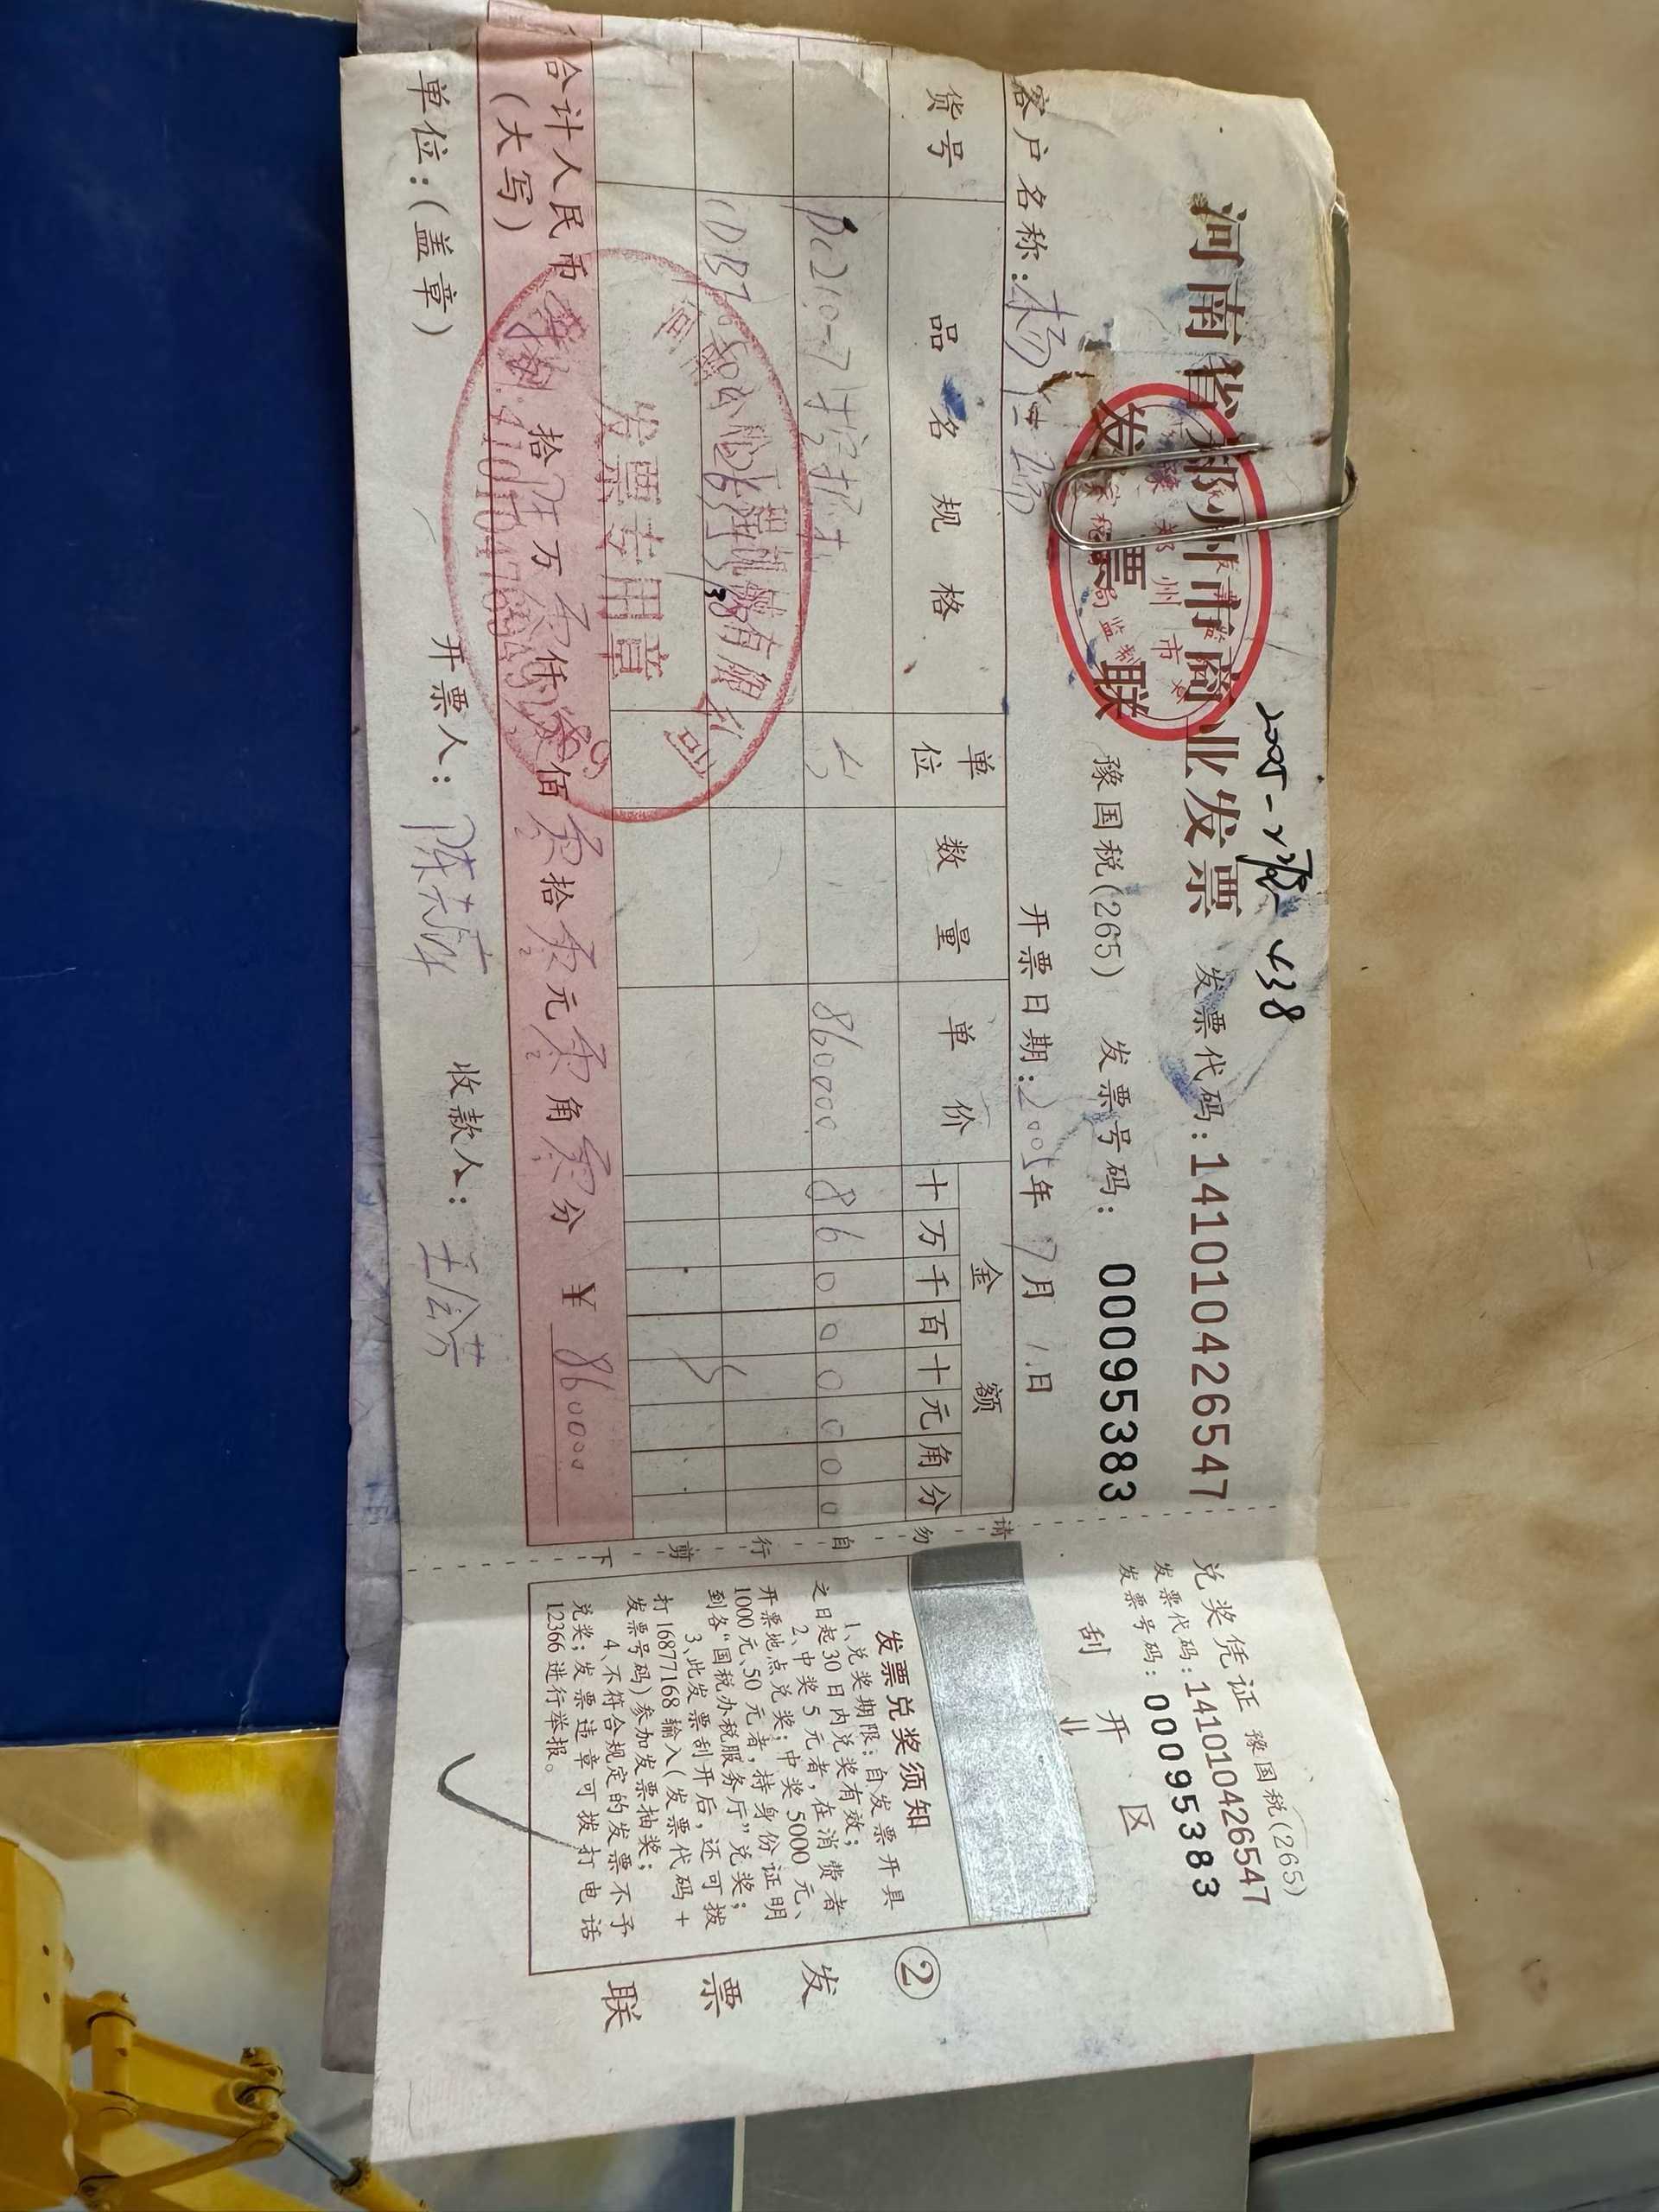 2005-2 438
河南省郑州市商业发票 发票代码:141010426547
发票联 豫国税(265) 发票号码: 00095383
客户名称: 杨 开票日期:2005年7月1日
货号 品名规格 单位 数量 单价 金额
十 万 千 百 十 元 角 分
挖掘机 860000 8 6 0 0 0 0 0 0
有限公司
发票专用章
合计人民币(大写) 捌拾陆万零仟零佰零拾零元零角零分 ¥ 860000
单位:(盖章) 开票人: 陈 收款人: 王
请勿自行剪下
兑奖凭证 豫国税(265)
发票代码:141010426547
发票号码: 00095383
刮开区
发票兑奖须知
1、兑奖期限:自发票开具
之日起30日内兑奖有效;
2、中奖5元者,在消费者
开票地点兑奖;中奖5000元、
1000元、50元者,持身份证明
到各“国税办税服务厅”兑奖;
3、此发票刮开后,还可拨
打16877168输入(发票代码+
发票号码)参加发票抽奖;
4、不符合规定的发票不予
兑奖;发票违章可拨打电话
12366进行举报。
②
发票联